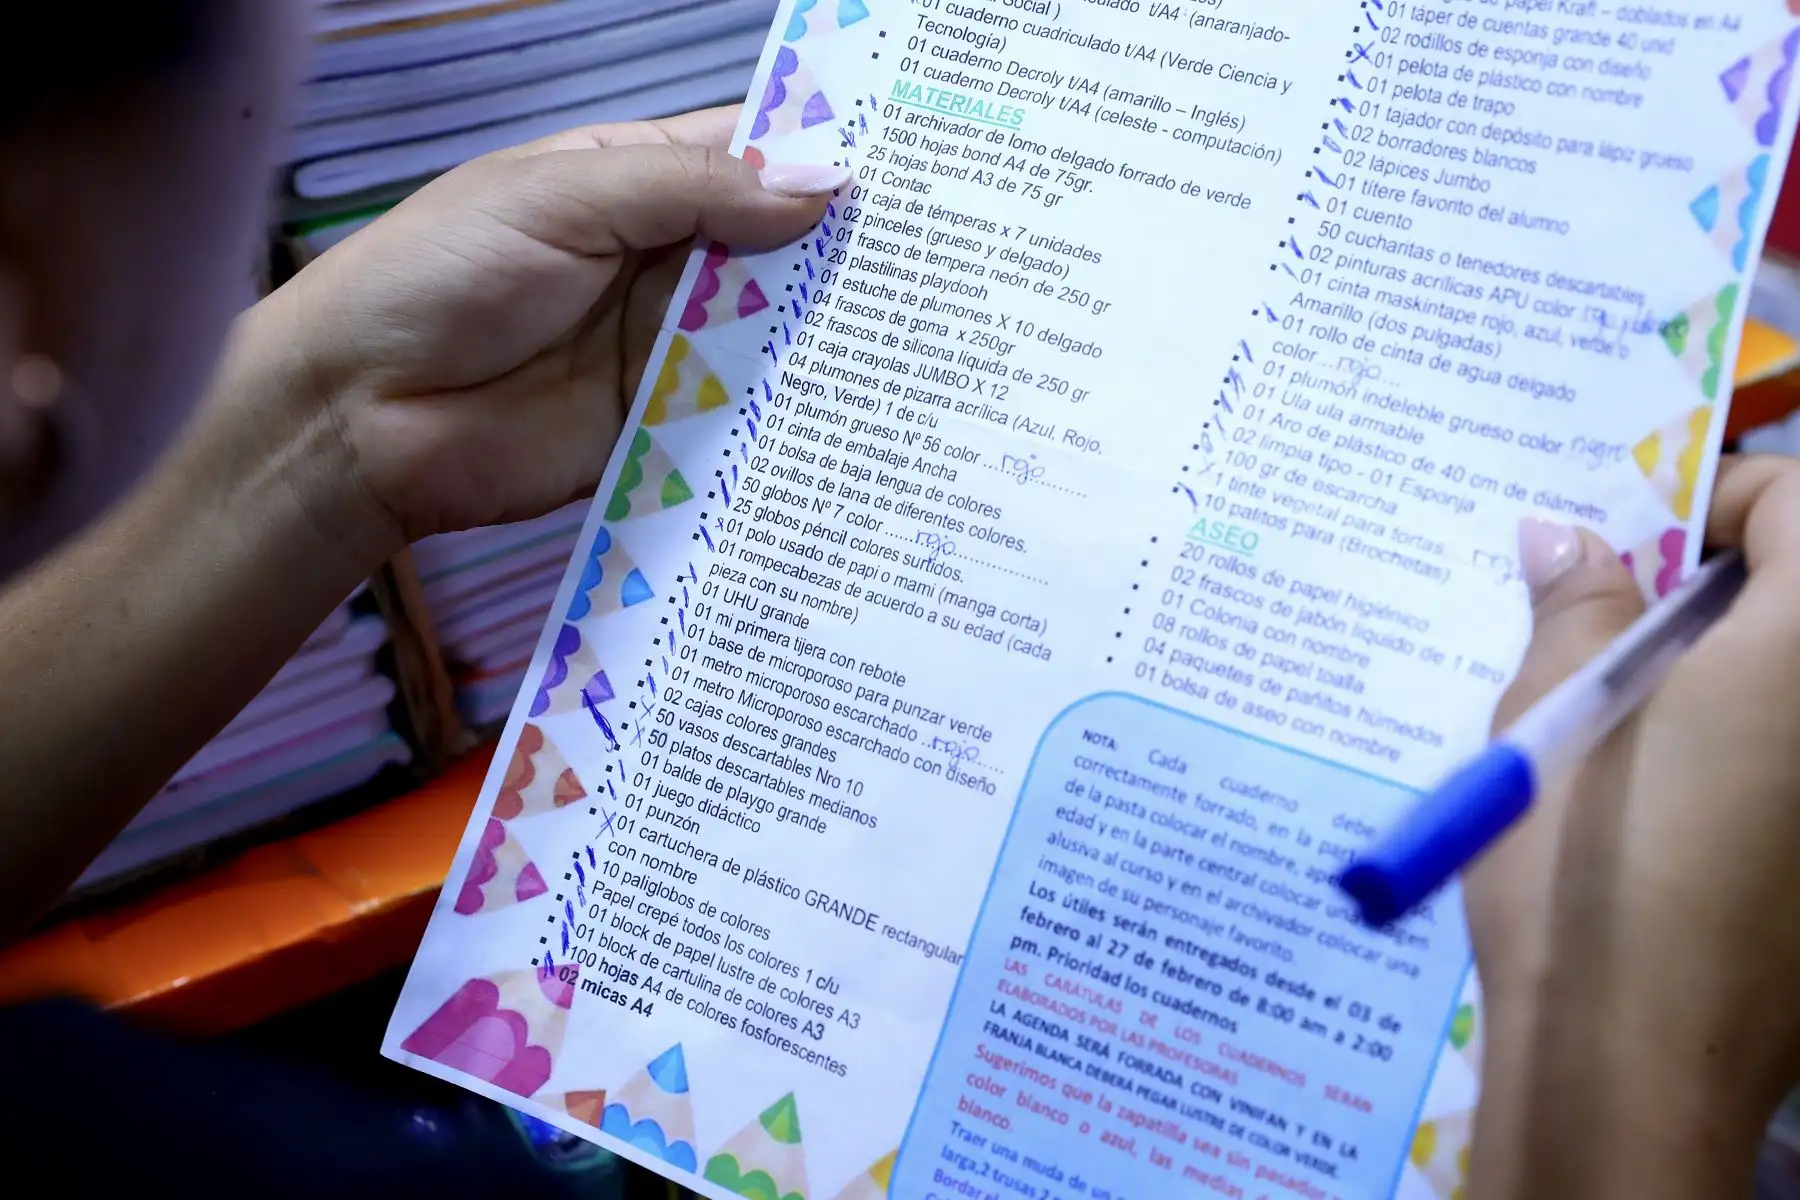 Social )
t/A4 (anaranjado-
01 cuaderno cuadriculado t/A4 (Verde Ciencia y
Tecnología)
01 cuaderno Decroly t/A4 (amarillo – Inglés)
01 cuaderno Decroly t/A4 (celeste - computación)
MATERIALES
01 archivador de lomo delgado forrado de verde
1500 hojas bond A4 de 75gr.
25 hojas bond A3 de 75 gr
01 Contac
01 caja de témperas x 7 unidades
02 pinceles (grueso y delgado)
01 frasco de tempera neón de 250 gr
20 plastilinas playdooh
01 estuche de plumones X 10 delgado
04 frascos de goma x 250gr
02 frascos de silicona líquida de 250 gr
01 caja crayolas JUMBO X 12
04 plumones de pizarra acrílica (Azul, Rojo,
Negro, Verde) 1 de c/u
01 plumón grueso Nº 56 color ....rojo..........
01 cinta de embalaje Ancha
01 bolsa de baja lengua de colores
02 ovillos de lana de diferentes colores.
50 globos Nº 7 color ......rojo..................
25 globos péncil colores surtidos.
01 polo usado de papi o mami (manga corta)
01 rompecabezas de acuerdo a su edad (cada
pieza con su nombre)
01 UHU grande
01 mi primera tijera con rebote
01 base de microporoso para punzar verde
01 metro microporoso escarchado ..rojo.....
01 metro Microporoso escarchado con diseño
02 cajas colores grandes
50 vasos descartables Nro 10
50 platos descartables medianos
01 balde de playgo grande
01 juego didáctico
01 punzón
01 cartuchera de plástico GRANDE rectangular
con nombre
10 paliglobos de colores
Papel crepé todos los colores 1 c/u
01 block de papel lustre de colores A3
01 block de cartulina de colores A3
100 hojas A4 de colores fosforescentes
02 micas A4
de papel Kraft – doblados en A4
01 táper de cuentas grande 40 unid
02 rodillos de esponja con diseño
01 pelota de plástico con nombre
01 pelota de trapo
01 tajador con depósito para lápiz grueso
02 borradores blancos
02 lápices Jumbo
01 títere favorito del alumno
01 cuento
50 cucharitas o tenedores descartables
02 pinturas acrílicas APU color
01 cinta maskintape rojo, azul, verde o
Amarillo (dos pulgadas)
01 rollo de cinta de agua delgado
color ...rojo....
01 plumón indeleble grueso color negro
01 Ula ula armable
01 Aro de plástico de 40 cm de diámetro
02 limpia tipo - 01 Esponja
100 gr de escarcha
1 tinte vegetal para tortas...
10 palitos para (Brochetas)
ASEO
20 rollos de papel higiénico
02 frascos de jabón líquido de 1 litro
01 Colonia con nombre
08 rollos de papel toalla
04 paquetes de pañitos húmedos
01 bolsa de aseo con nombre
NOTA: Cada cuaderno debe
correctamente forrado, en la
de la pasta colocar el nombre,
edad y en la parte central colocar una
alusiva al curso y en el archivador colocar una
imagen de su personaje favorito.
Los útiles serán entregados desde el 03 de
febrero al 27 de febrero de 8:00 am a 2:00
pm. Prioridad los cuadernos
LAS CARÁTULAS DE LOS CUADERNOS SERÁN
ELABORADOS POR LAS PROFESORAS
LA AGENDA SERÁ FORRADA CON VINIFAN Y EN LA
FRANJA BLANCA DEBERÁ PEGAR LUSTRE DE COLOR VERDE.
Sugerimos que la zapatilla sea sin
color blanco o azul, las medias
blanco.
Traer una muda de
larga,2 trusas
Bordar